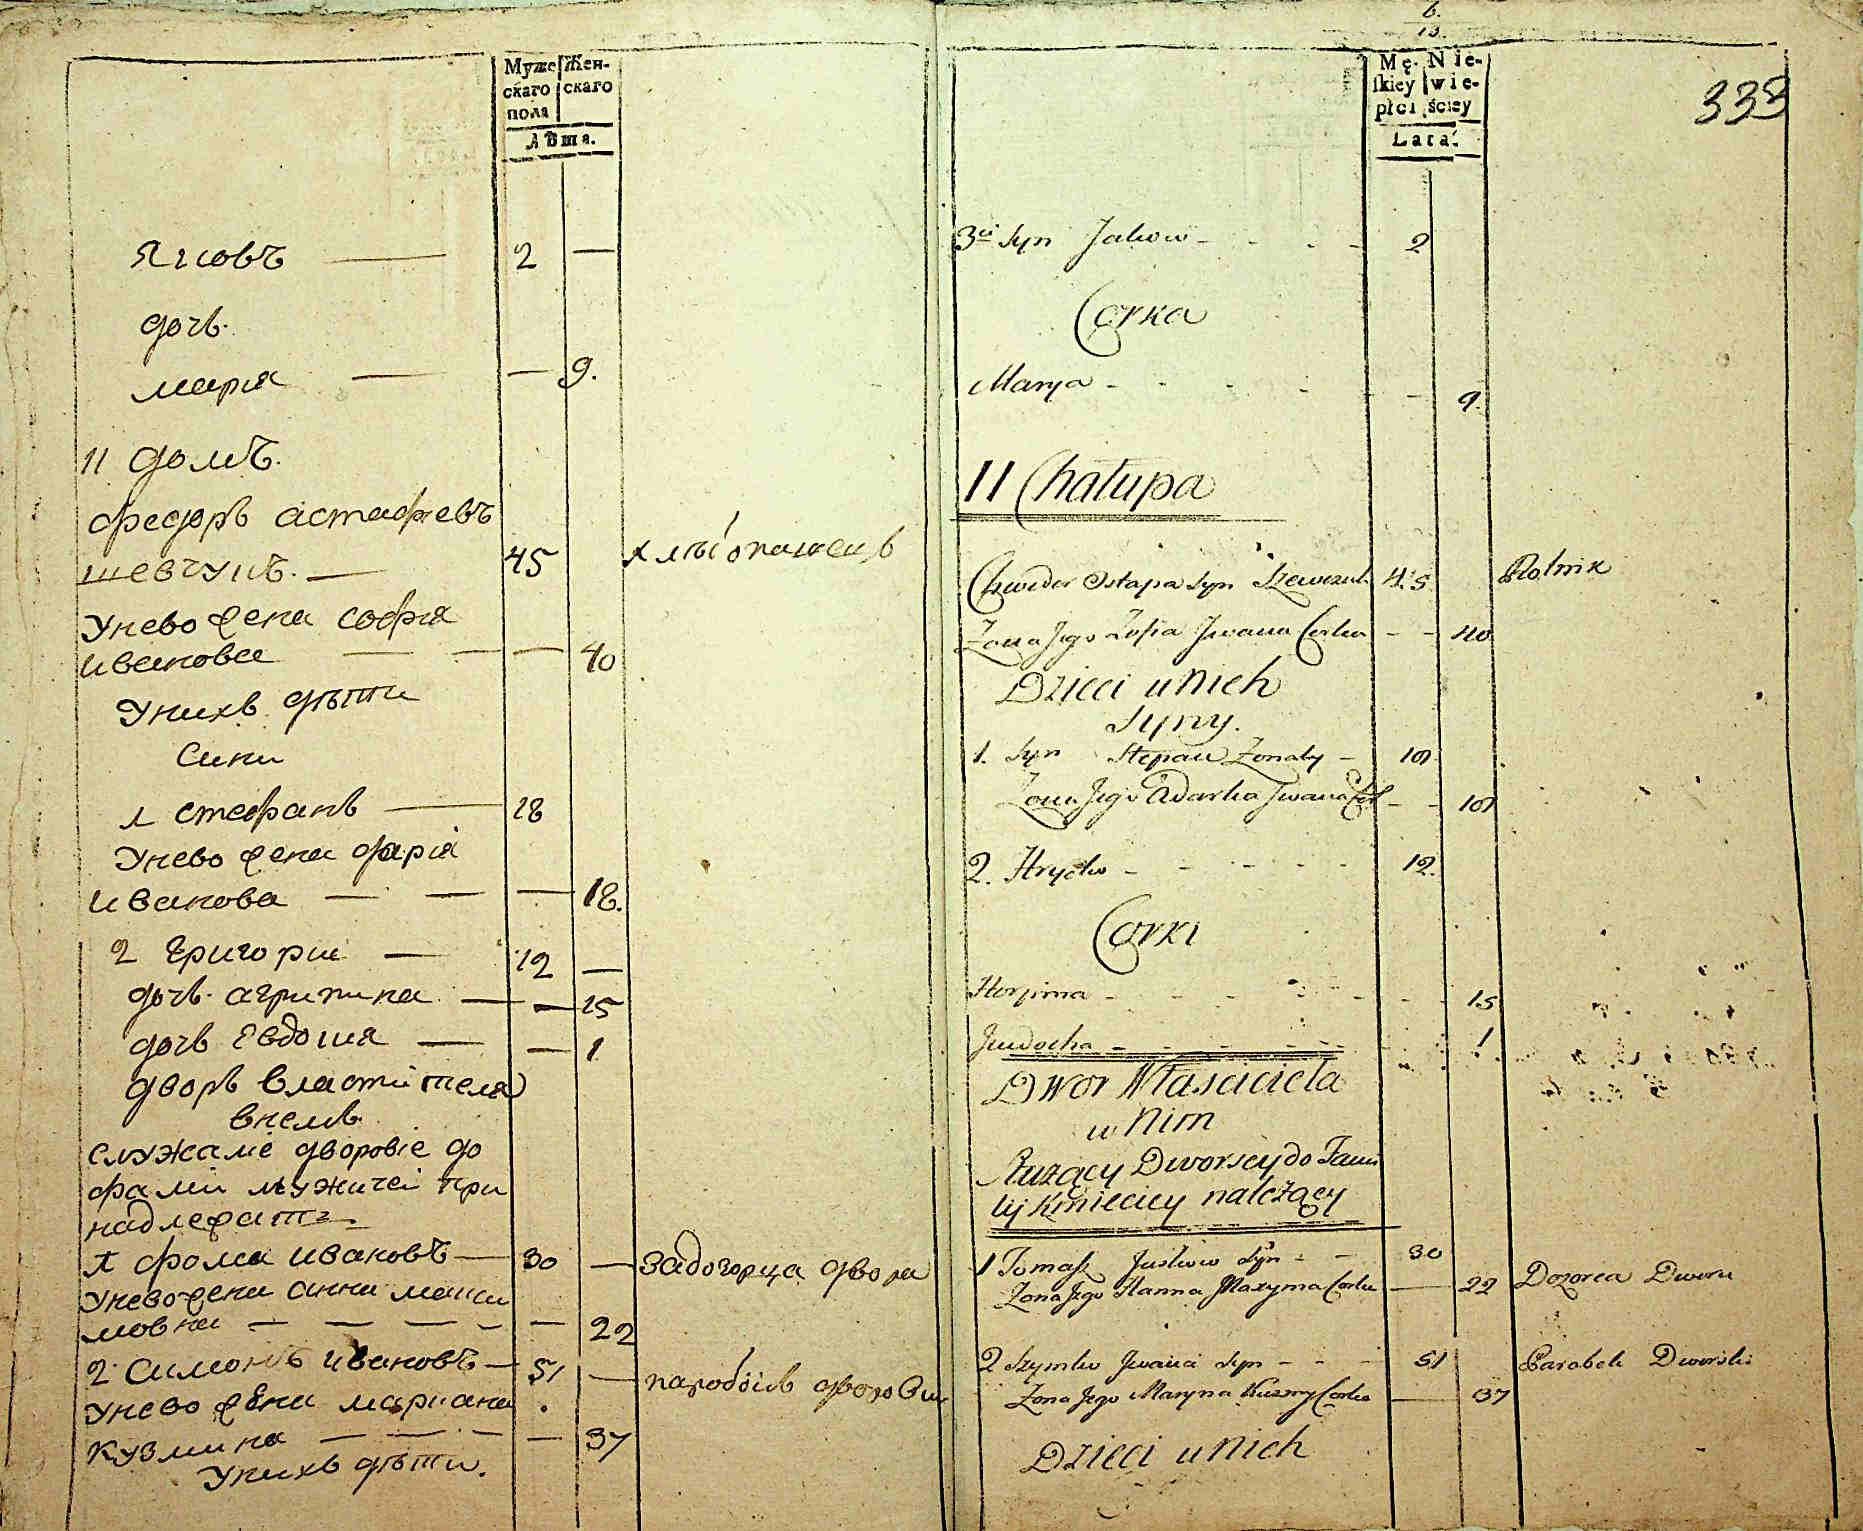 Муже Жен-
скаго скаго
поля
лѣта.
Яковъ — 2 —
дочь.
мария — — 9.
11 домъ.
федоръ астафиевъ
шевчукъ. — 45 хлѣбопашецъ
Унево жена софия
иванова — — — 40
Унихъ дѣти
сини
1 стефанъ — 18
Унево жена дария
иванова — — — 18.
2 григории — 12 —
дочь. агрипина — — 15
дочь Евдошия — — 1
дворъ властителя
внемъ
служаме дворовіе до
фамили мужичеи при
надлежатъ
1 фома ивановъ — 30 —
Унево жена анна макси
мовна — — — — — 22
2. симонъ ивановъ — 51 —
унево жена мариана
кузмина — — — — 37
Унихъ дѣти.
6.
13.
333
Mę- Nie-
skiey wie-
płci ściey
Lata.
3ci syn Jakow - - - 2
Corka
Marya - - - - - 9.
11 Chałupa
Chweder Ostapa syn Szewczuk 45 Rolnik
Zona Jego Zofia Jwana Corka - - 40
Dzieci u Nich
Syny.
1. Syn Stepan Zonaty - 18
Zona Jego Adarka Jwana Cor - - 18
2. Hryćko - - - - - 12.
Corki
Horpina - - - - - - 15
Jewdocha - - - - - 1
Dwor Własciciela
w Nim
Służący Dworscy do Fami
lij Kmieciey należący
1 Tomasz Jwanow Syn - - 30
Zona Jego Hanna Maxyma Corka — 22 Dozorca Dworu
2 Szymko Jwana syn - - - 51 Parobek Dworski
Zona Jego Maryna Kuzmy Corka — 37
Dzieci u Nich